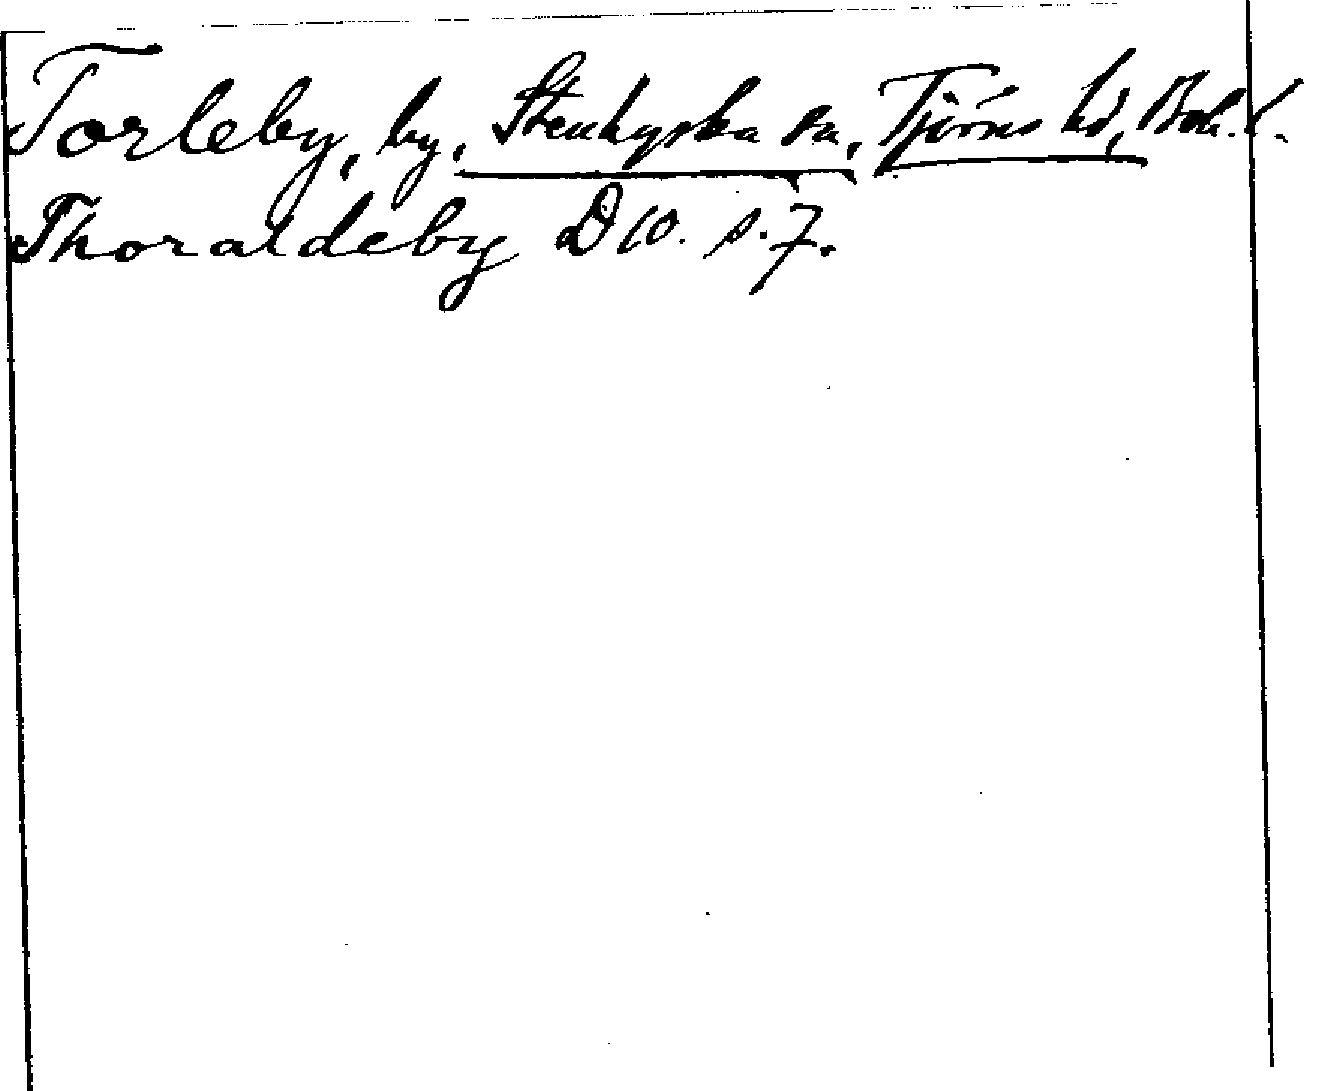 Torleby, by, Stenkyrka sn, Tjörns hd, Boh. l.
Thoraldeby D 10. s. 7.